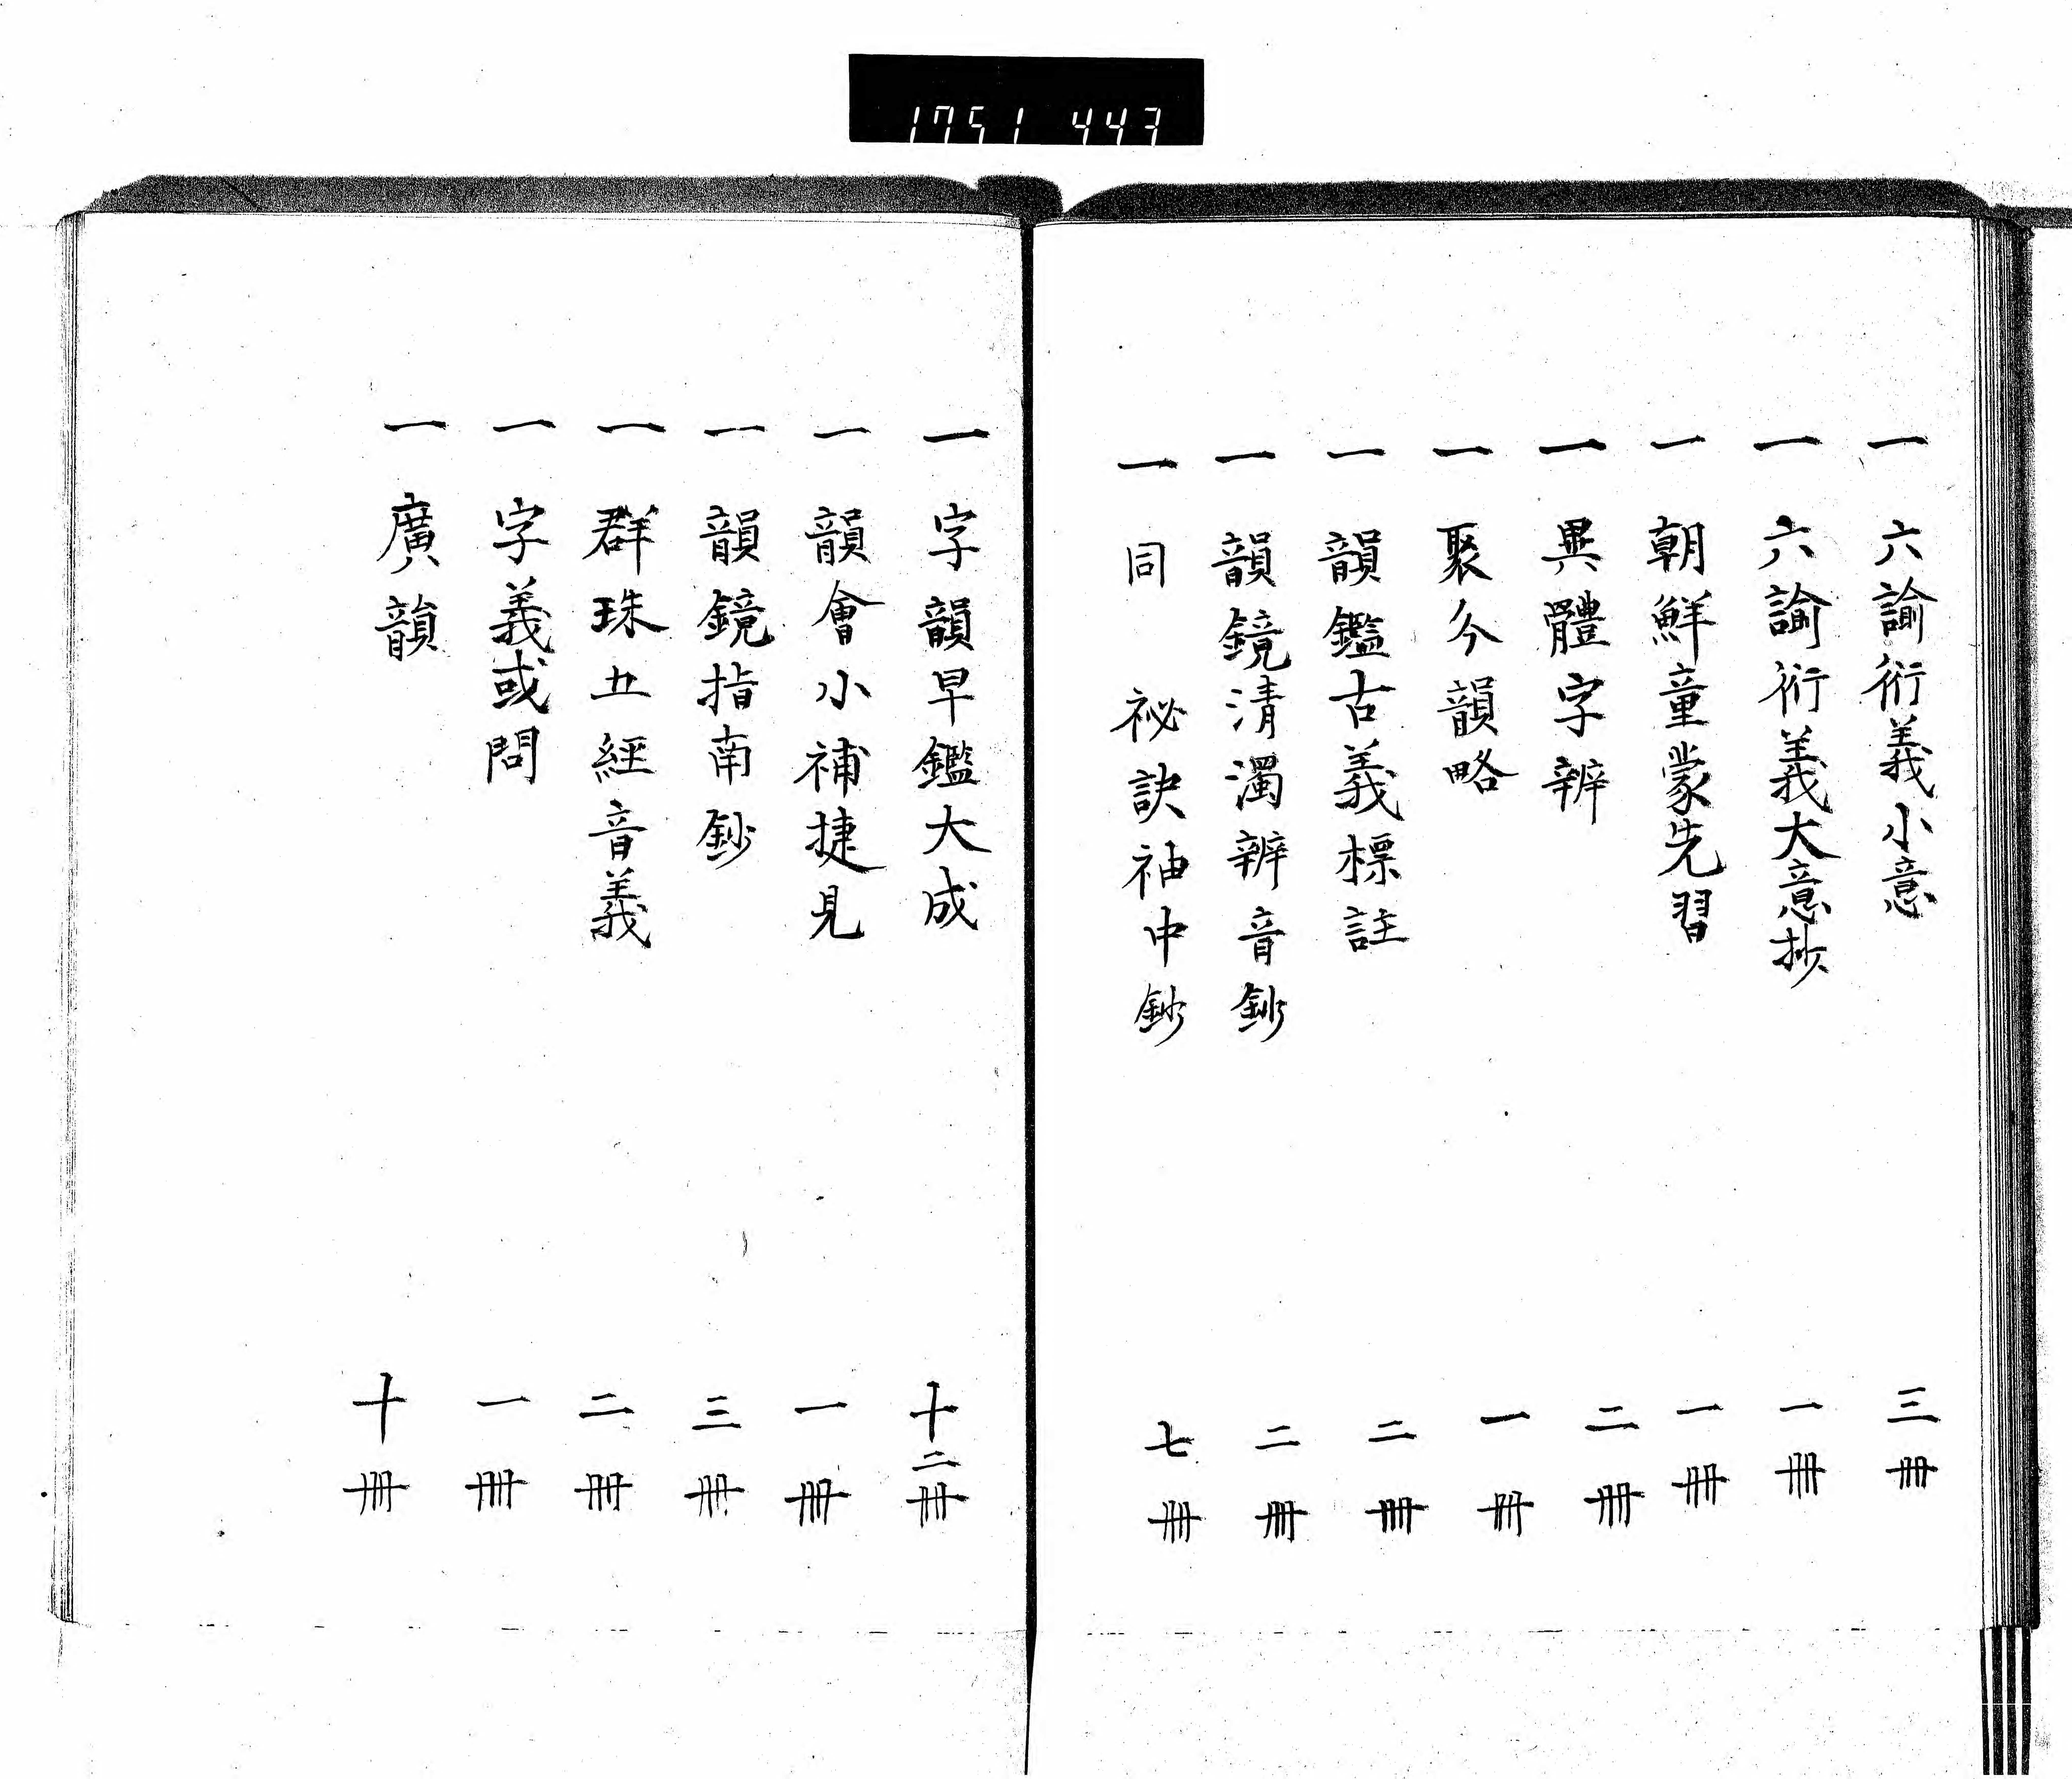 1751 443
一 六諭衍義小意 三冊
一 六諭衍義大意抄 一冊
一 朝鮮童蒙先習 一冊
一 異體字辨 二冊
一 聚分韻略 一冊
一 韻鑑古義標註 二冊
一 韻鏡清濁辨音鈔 二冊
一 同 祕訣袖中鈔 七冊
一 字韻早鑑大成 十二冊
一 韻會小補捷見 一冊
一 韻鏡指南鈔 三冊
一 群珠五經音義 二冊
一 字義或問 一冊
一 廣韻 十冊